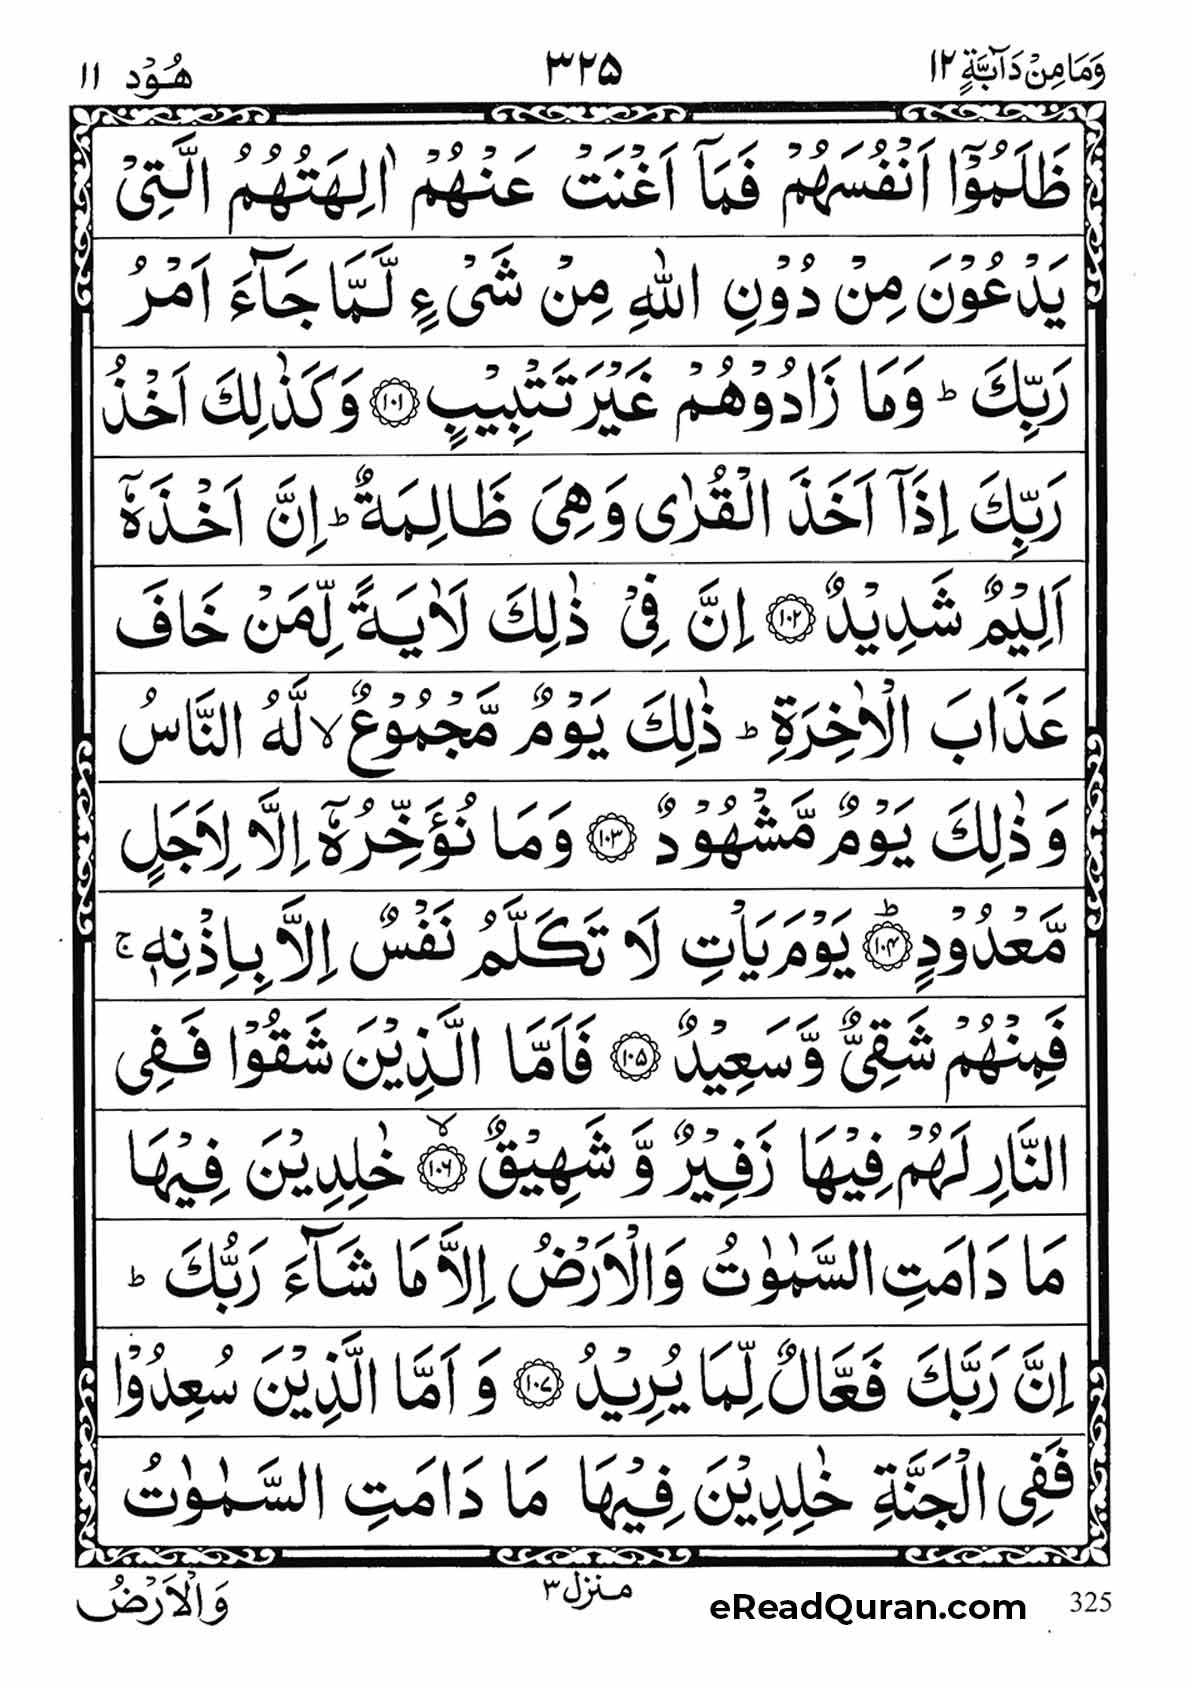 وَمَا مِنْ دَآبَّةٍ ١٢ ٣٢٥ هُوْد ١١
ظَلَمُوْۤا اَنْفُسَهُمْ فَمَاۤ اَغْنَتْ عَنْهُمْ اٰلِهَتُهُمُ الَّتِیْ
یَدْعُوْنَ مِنْ دُوْنِ اللّٰهِ مِنْ شَیْءٍ لَّمَّا جَآءَ اَمْرُ
رَبِّكَ ؕ وَمَا زَادُوْهُمْ غَیْرَ تَتْبِیْبٍ ١٠١ وَكَذٰلِكَ اَخْذُ
رَبِّكَ اِذَاۤ اَخَذَ الْقُرٰی وَهِیَ ظَالِمَةٌ ؕ اِنَّ اَخْذَهٗۤ
اَلِیْمٌ شَدِیْدٌ ١٠٢ اِنَّ فِیْ ذٰلِكَ لَاٰیَةً لِّمَنْ خَافَ
عَذَابَ الْاٰخِرَةِ ؕ ذٰلِكَ یَوْمٌ مَّجْمُوْعٌ ۙ لَّهُ النَّاسُ
وَذٰلِكَ یَوْمٌ مَّشْهُوْدٌ ١٠٣ وَمَا نُؤَخِّرُهٗۤ اِلَّا لِاَجَلٍ
مَّعْدُوْدٍ ؕ ١٠۴ یَوْمَ یَاْتِ لَا تَكَلَّمُ نَفْسٌ اِلَّا بِاِذْنِهٖ ۚ
فَمِنْهُمْ شَقِیٌّ وَّسَعِیْدٌ ١٠۵ فَاَمَّا الَّذِیْنَ شَقُوْا فَفِی
النَّارِ لَهُمْ فِیْهَا زَفِیْرٌ وَّشَهِیْقٌ ۙ ١٠٦ خٰلِدِیْنَ فِیْهَا
مَا دَامَتِ السَّمٰوٰتُ وَالْاَرْضُ اِلَّا مَا شَآءَ رَبُّكَ ؕ
اِنَّ رَبَّكَ فَعَّالٌ لِّمَا یُرِیْدُ ١٠٧ وَاَمَّا الَّذِیْنَ سُعِدُوْا
فَفِی الْجَنَّةِ خٰلِدِیْنَ فِیْهَا مَا دَامَتِ السَّمٰوٰتُ
وَالْاَرْضُ منزل ٣ eReadQuran.com 325